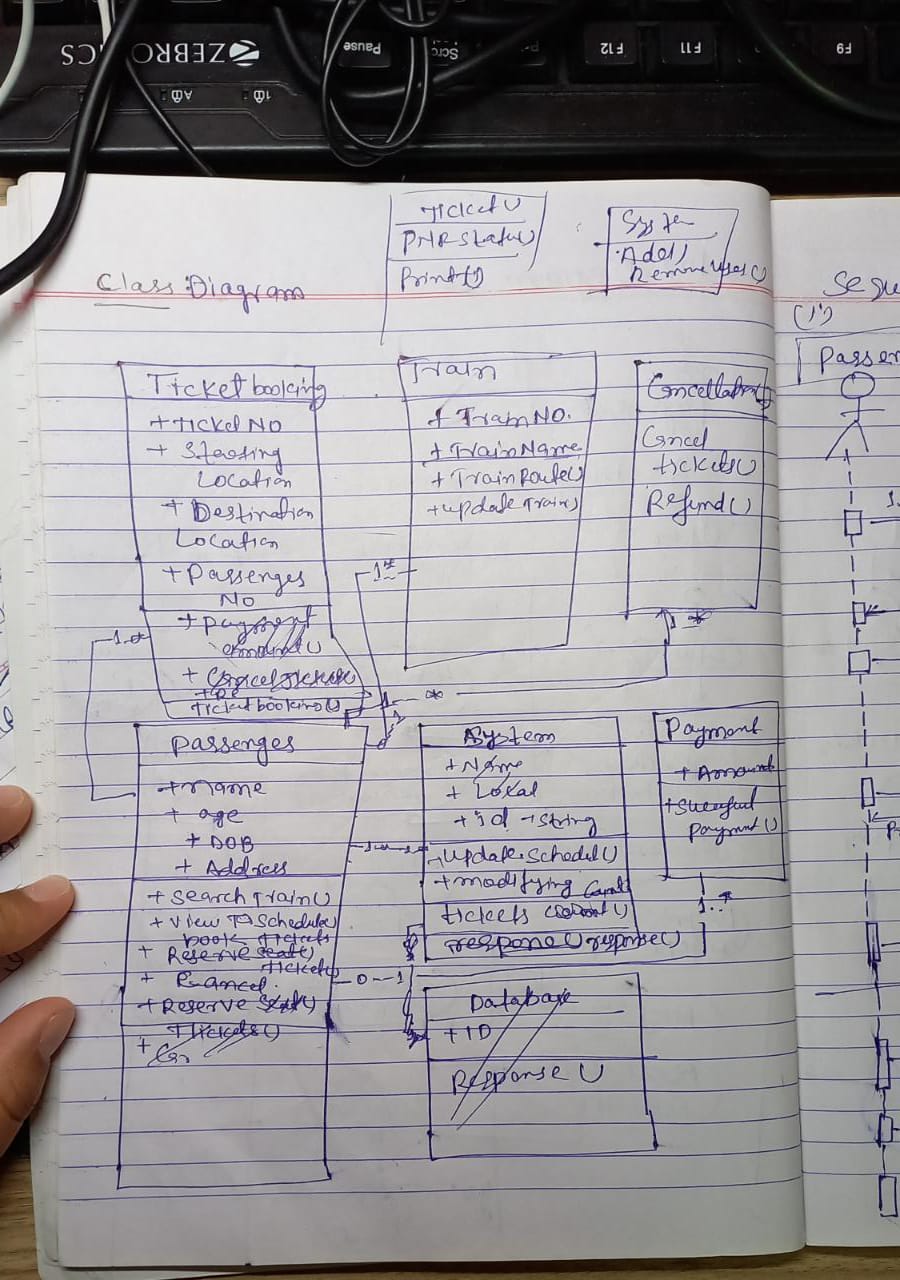 ZEBRONICS
Pause
F12
F11
F9
Ticket()
PNR Status()
Print()
System
Add()
Remove User()
Class Diagram
Ticket booking
+ Ticket NO
+ Starting
Location
+ Destination
Location
+ Passenger
NO
+ Payment
amount()
+ Cancel Ticket()
Ticket booking()
Train
+ Train NO.
+ Train Name
+ Train Route()
+ update Train()
Cancellation
Cancel
tickets()
Refund()
1..*
1..*
1 *
*
1
Passenger
+ name
+ age
+ DOB
+ Address
+ Search Train()
+ View Schedule
book tickets
+ Reserve seat()
tickets
+ Cancel
+ Reserve seat()
Tickets()
System
+ Name
+ Lokal
+ id - String
- update Schedul()
+ modifying
tickets
response() response()
Payment
+ Amount
+ sucessful
payment()
1..*
0--1
Database
+ ID
Response()
Sequ
(1)
Passen
1.
P